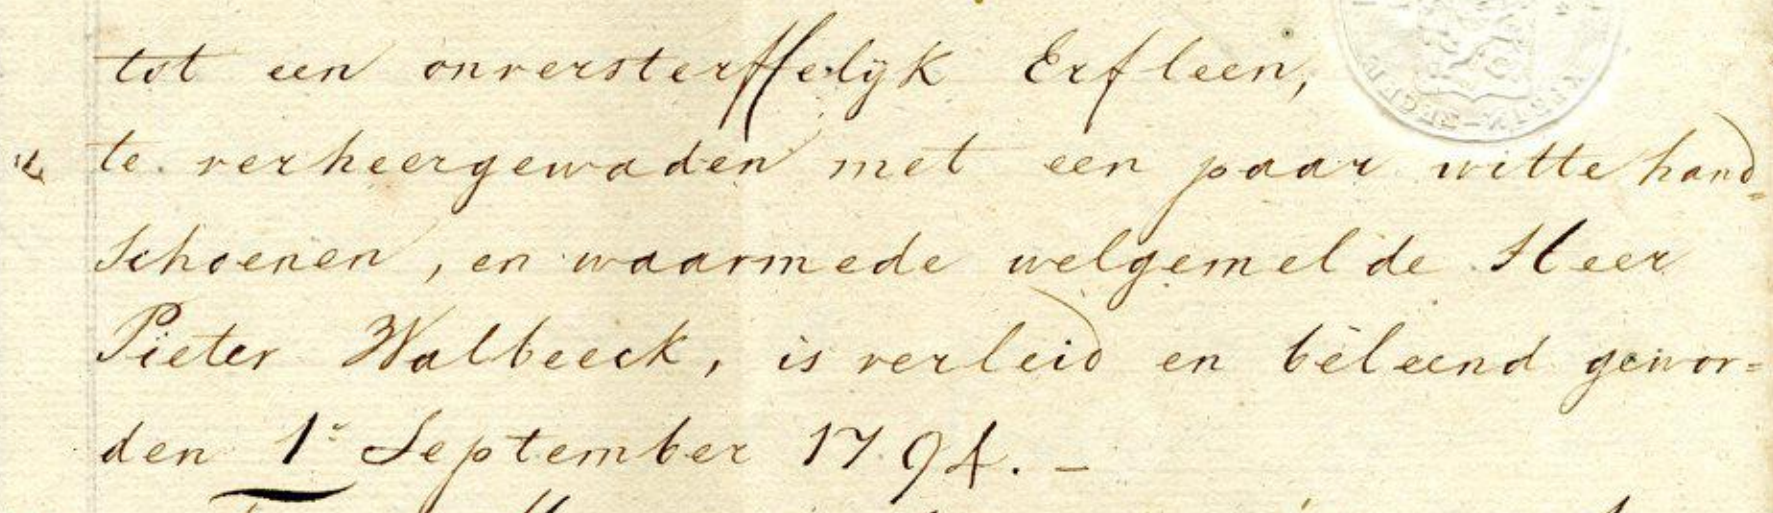 tot een onversterffelijk Erfleen,
te verheergewaden met een paar witte hand=
schoenen, en waarmede welgemelde Heer
Pieter Walbeeck, is verleid en beleend gewor=
den 1e September 1794. –